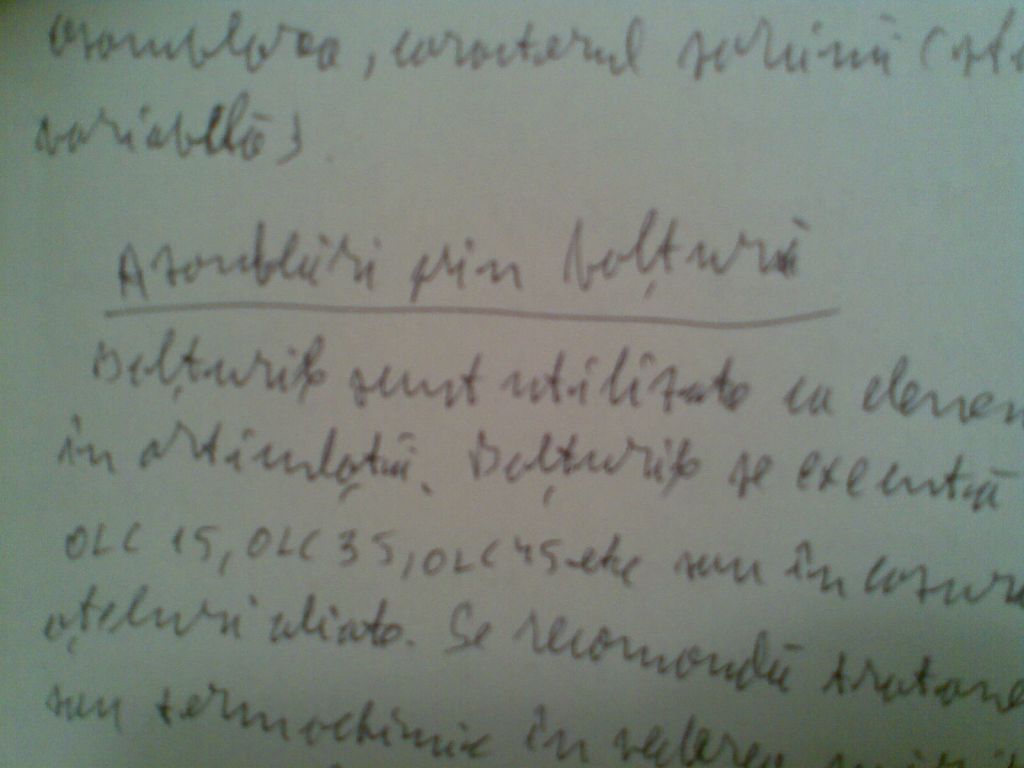 asamblarea, caracterul sarcinii (st
variabilă).
Asamblări prin bolțuri
Bolțurile sunt utilizate ca elemen
în articulații. Bolțurile se execută
OLC 15, OLC 35, OLC 45 etc sau în cazuri
oțeluri aliate. Se recomandă tratame
sau termochimic în vederea